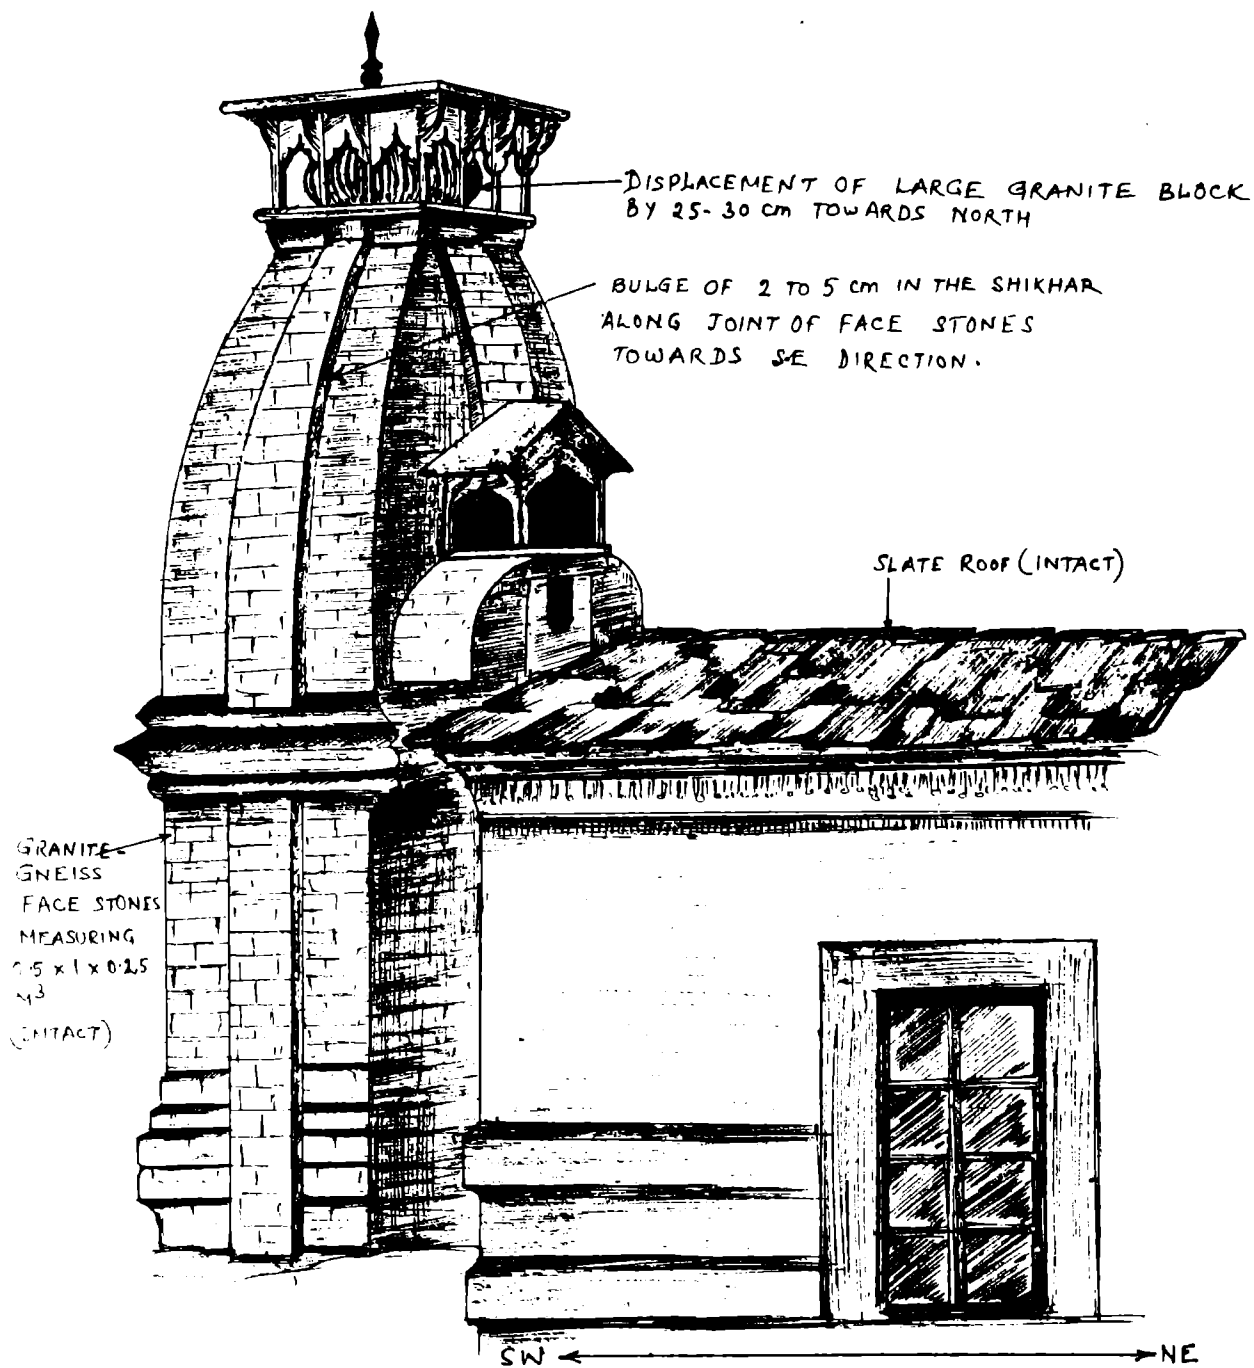 DISPLACEMENT OF LARGE GRANITE BLOCK
BY 25-30 cm TOWARDS NORTH
BULGE OF 2 TO 5 cm IN THE SHIKHAR
ALONG JOINT OF FACE STONES
TOWARDS SE DIRECTION.
SLATE ROOF (INTACT)
GRANITE-
GNEISS
FACE STONES
MEASURING
0.5 x 1 x 0.25
M3
(INTACT)
SW NE